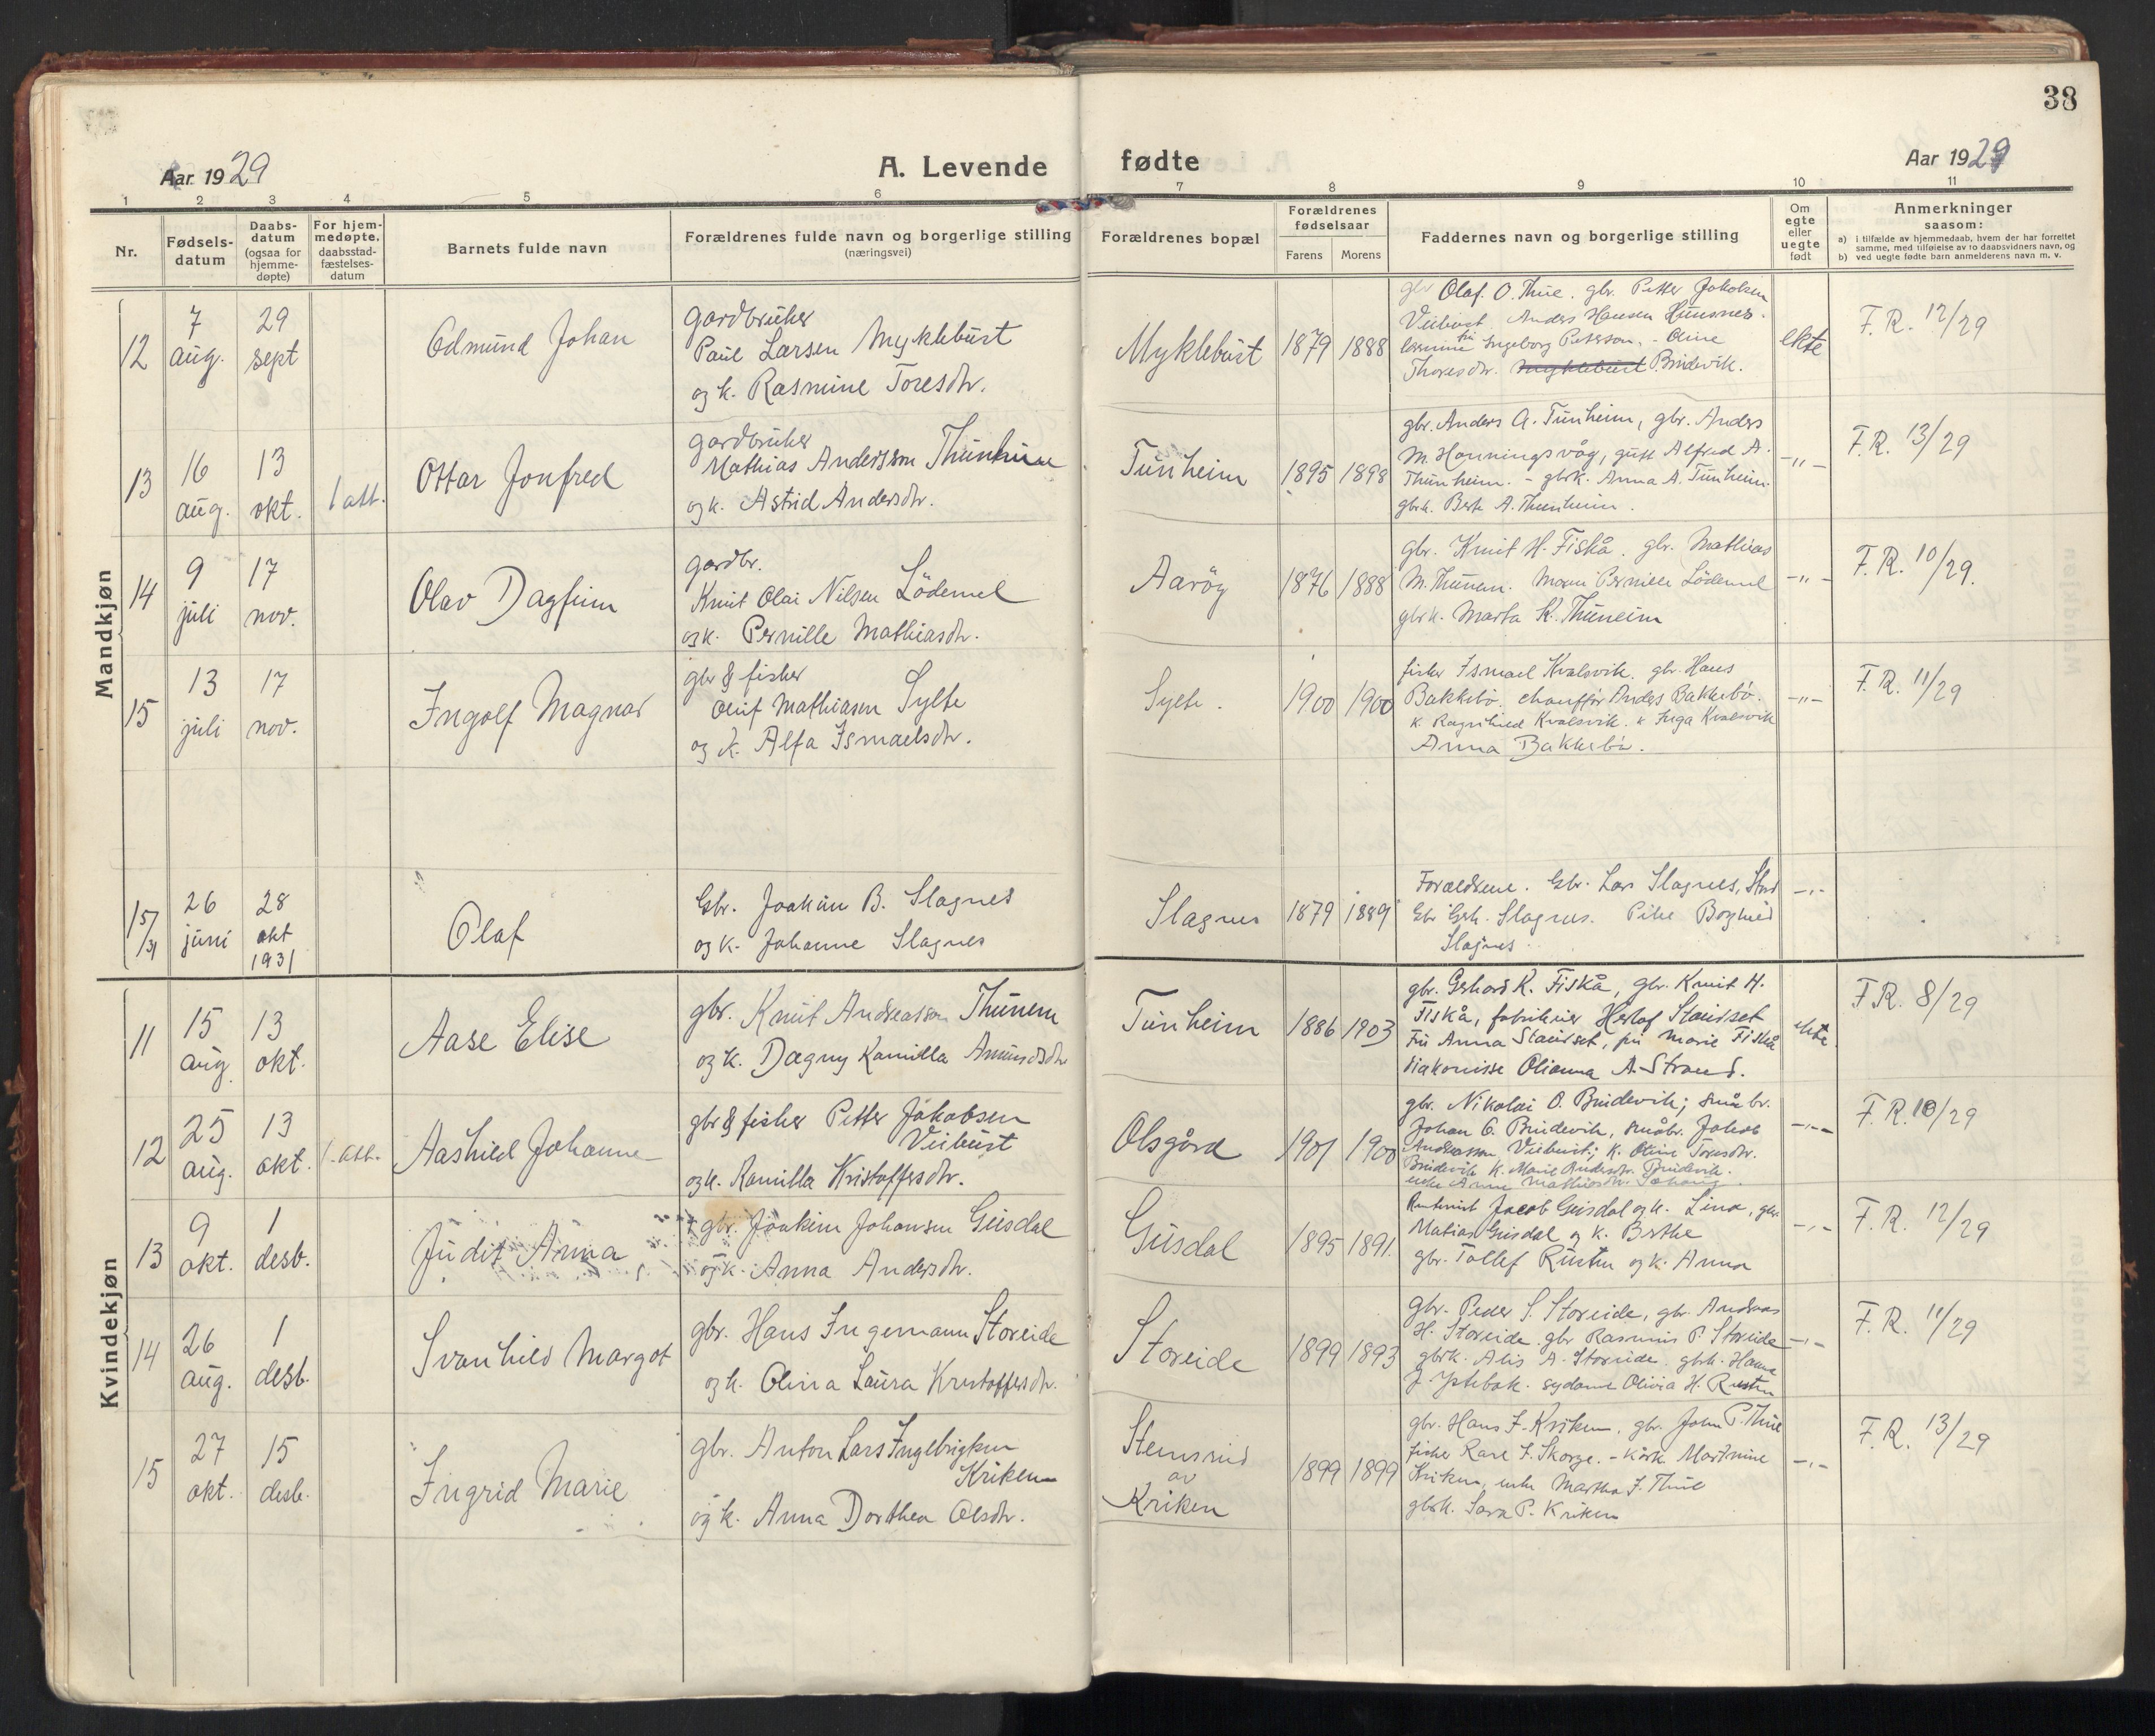 38
Aar 1929
A. Levende fødte
Aar 1929
1 2 3 4 5 6 7 8 9 10 11
Nr.
Fødsels-
datum
Daabs-
datum
(ogsaa for
hjemme-
døpte)
For hjem-
medøpte,
daabsstad-
fæstelses-
datum
Barnets fulde navn
Forældrenes fulde navn og borgerlige stilling
(næringsvei)
Forældrenes bopæl
Forældrenes
fødselsaar
Farens Morens
Faddernes navn og borgerlige stilling
Om
egte
eller
uegte
født
Anmerkninger
saasom:
a) i tilfælde av hjemmedaab, hvem der har forrettet
samme, med tilføielse av to daabsvidners navn, og
b) ved uegte fødte barn anmelderens navn m. v.
Mandkjøn
12
7
aug.
29
sept
Edmund Johan
gardbruker
Paul Larsen Myklebust
og k. Rasmine Toresdtr.
Myklebust
1879 1888
gbr Olaf. O. Thue. gbr. Petter Jakobsen
Veibust. Anders Hansen Huusnes.
fru Ingeborg Peterson. - Oline
Thoresdtr. Myklebust P. Brudevik.
ekte
F. R. 12/29
13
16
aug.
13
okt.
/ att.
Ottar Jonfred
gardbruker
Mathias Anderssøn Thunheim
og k. Astrid Andersdtr.
Tunheim
1895 1898
gbr. Anders A. Tunheim, gbr. Anders
M. Honningsvåg, gutt Alfred A.
Thunheim. - gbrk. Anna A. Tunheim.
gbrk. Berte A. Thunheim.
-"-
F. R. 13/29
14
9
juli
17
nov.
Olav Dagfinn
gardbr.
Knut Olai Nilsen Lødemel
og k. Pernille Mathiasdtr.
Aarøy
1876 1888
gbr. Knut H. Fiskå. gbr. Mathias
M. Thunem. Marie Pernille Lødemel
gbrk. Marta K. Thuneim
-"-
F. R. 10/29.
15
13
juli
17
nov.
Ingolf Magnar
gbr & fisker
Oluf Mathiasen Sylte
og k. Alfa Ismaelsdtr.
Sylte.
1900 1900
fisker Ismael Kvalsvik. gbr. Hans
Bakkebø. chauffør Anders Bakkebø.
k Ragnhild Kvalsvik. k Inga Kvalsvik
Anna Bakkebø.
-"-
F. R. 11/29
15/31
26
juni
28
okt
1931
Olaf
Gbr. Joakim B. Slagnes
og k. Johanne Slagnes
Slagnes
1879 1889
Forældrene. Gbr. Lars Slagnes,
Gbr Slagnes. Pike Borghild
Slagnes
-"-
Kvindekjøn
11
15
aug.
13
okt.
Aase Elise
gbr. Knut Andreassøn Thunem
og k. Dagny Kamilla Amundsdtr
Tunheim
1886 1903
gbr. Gerhard K. Fiskå, gbr. Knut H.
Fiskå, fabrikeier Herlof Staurset
Fru Anna Staurset, fru Marie Fiskå
diakonisse Olianna A. Strand.
ekte.
F. R. 8/29
12
25
aug.
13
okt.
/. att.
Aashild Johanne
gbr & fisker Petter Jakobsen
Veibust
og k. Kamilla Kristoffersdtr.
Olsgård
1901 1900
gbr. Nikolai O. Brudevik; småbr.
Johan G. Brudevik, småbr. Jakob
Andreassen Veibust; k. Oline Toresdtr.
Brudevik k. Marie Andersdtr. Brudevik.
enke Anne Mathiasdtr.
-"-
F. R. 10/29
13
9
okt.
1
desb.
Judit Anna
gbr. Joakim Johansen Gusdal
og k. Anna Andersdtr.
Gusdal
1895 1891.
Jacob Gusdal og k. Lina, gbr.
Matias Gusdal og k. Berthe
gbr. Tollef Rusten og k. Anna
-"-
F. R. 12/29
14
26
aug.
1
desb.
Svanhild Margot
gbr. Hans Ingemann Storeide
og k. Olina Laura Kristoffersdtr.
Storeide
1899 1893
gbr. Peder S. Storeide, gbr. Andreas
H. Storeide. gbr Rasmus P. Storeide
gbrk. Alis A. Storeide. gbrk. Hanne
J. Ystebøk. sydame Olivia H. Rusten
-"-
F. R. 11/29
15
27
okt.
15
desb.
Ingrid Marie
gbr. Anton Lars Ingebrigtsen
Kriken
og k. Anna Dorthea Olsdtr.
Stensrud
av
Kriken
1899 1899
gbr. Hans J. Kriken, gbr. John P. Thue
fisker Kare J. Skorge. - Kårk Martinine
Kriken, enke Martha J. Thue
gbrk. Sara P. Kriken
-"-
F. R. 13/29